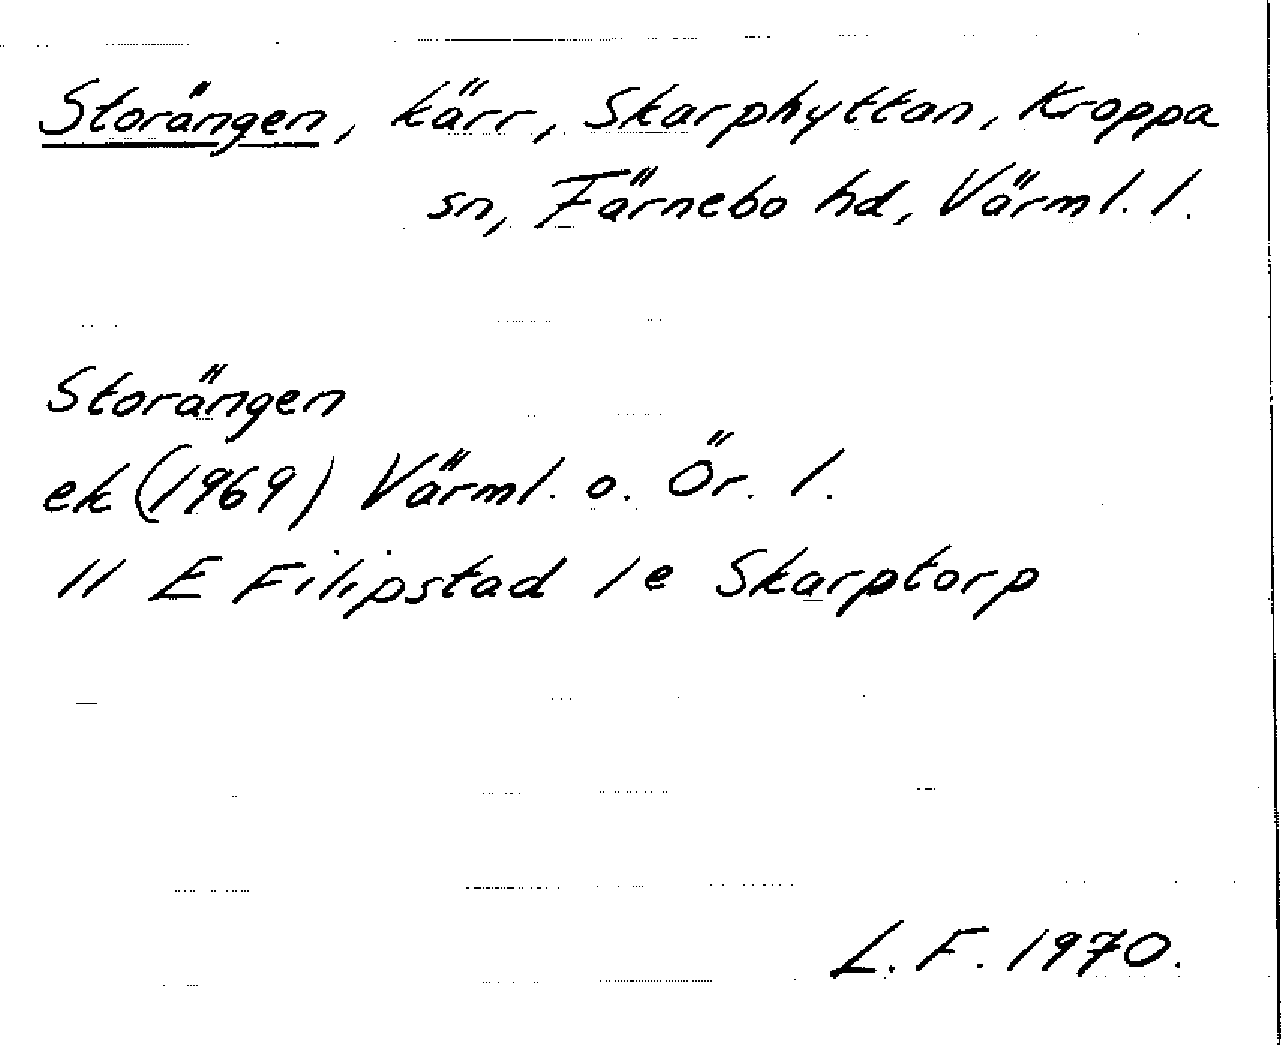 Storängen, kärr, Skarphyttan, Kroppa
sn, Färnebo hd, Värml. l.
Storängen
ek (1969) Värml. o. Ör. l.
11 E Filipstad 1e Skarptorp
L. F. 1970.